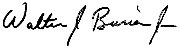 Walter J Burien Jr